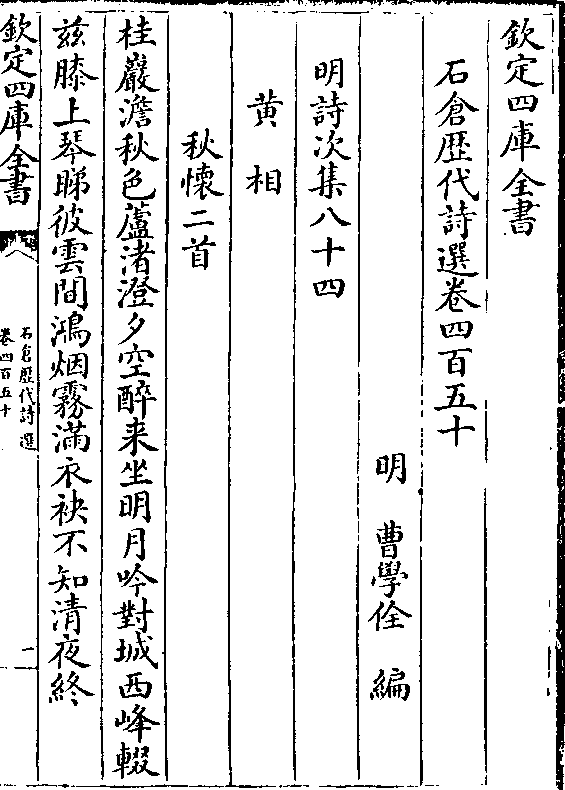 欽定四庫全書
石倉歴代詩選卷四百五十
明 曹學佺 編
明詩次集八十四
黄相
秋懷二首
桂巖澹秋色蘆渚澄夕空醉来坐明月吟對城西峰輟
兹膝上琴睇彼雲間鴻烟霧滿衣袂不知清夜終
欽定四庫全書
石倉歴代詩選
卷四百五十
一